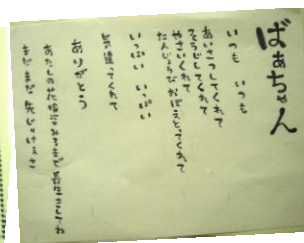 ばぁちゃん
いつも いつも
あいさつしてくれて
そうじしてくれて
やさいくれて
たんじょうびおぼえとってくれて
いっぱい いっぱい
気遣ってくれて
ありがとう
あたしの花嫁みるまで長生きしてね
まだまだ先じゃけぇさ